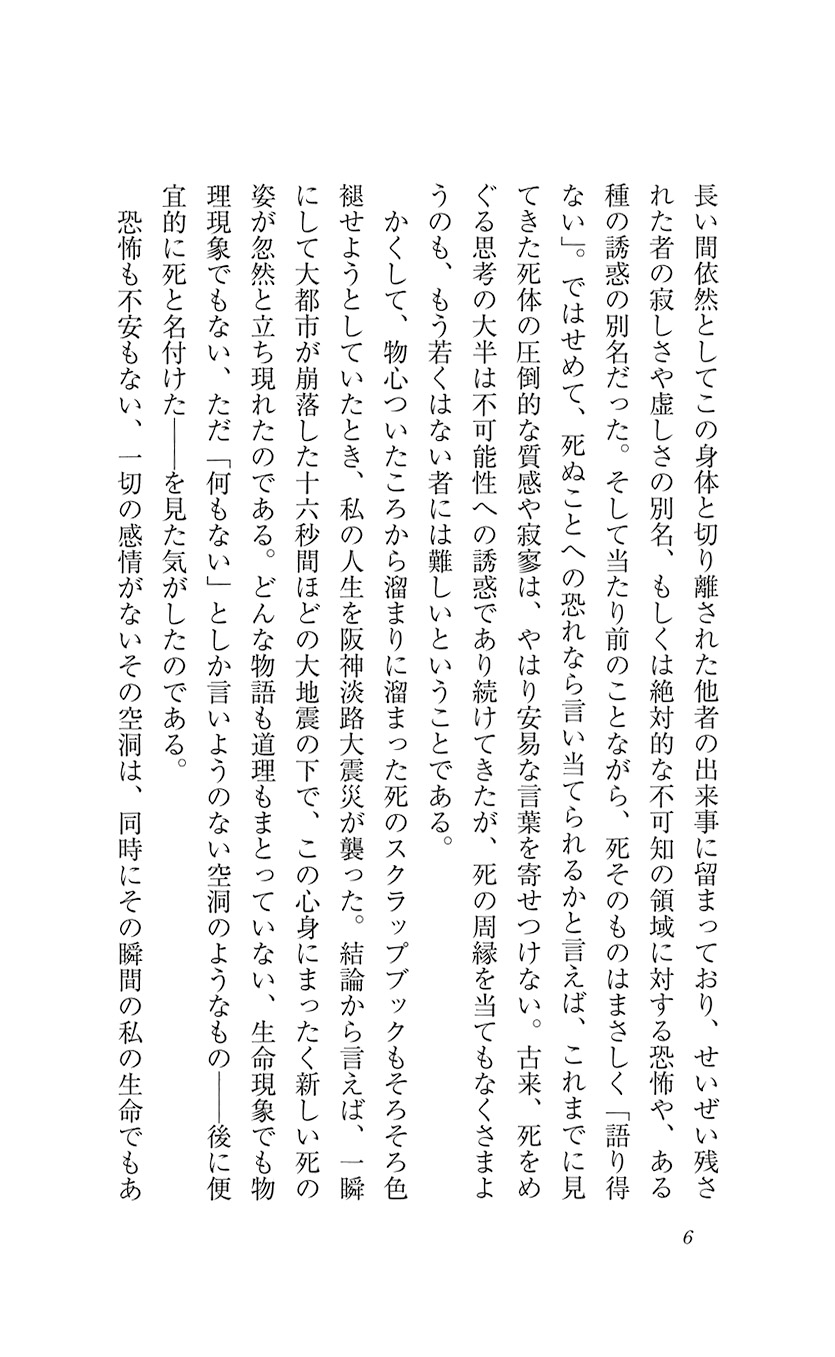 長い間依然としてこの身体と切り離された他者の出来事に留まっており、せいぜい残さ
れた者の寂しさや虚しさの別名、もしくは絶対的な不可知の領域に対する恐怖や、ある
種の誘惑の別名だった。そして当たり前のことながら、死そのものはまさしく「語り得
ない」。ではせめて、死ぬことへの恐れなら言い当てられるかと言えば、これまでに見
てきた死体の圧倒的な質感や寂寥は、やはり安易な言葉を寄せつけない。古来、死をめ
ぐる思考の大半は不可能性への誘惑であり続けてきたが、死の周縁を当てもなくさまよ
うのも、もう若くはない者には難しいということである。
　かくして、物心ついたころから溜まりに溜まった死のスクラップブックもそろそろ色
褪せようとしていたとき、私の人生を阪神淡路大震災が襲った。結論から言えば、一瞬
にして大都市が崩落した十六秒間ほどの大地震の下で、この心身にまったく新しい死の
姿が忽然と立ち現れたのである。どんな物語も道理もまとっていない、生命現象でも物
理現象でもない、ただ「何もない」としか言いようのない空洞のようなもの――後に便
宜的に死と名付けた――を見た気がしたのである。
　恐怖も不安もない、一切の感情がないその空洞は、同時にその瞬間の私の生命でもあ
6